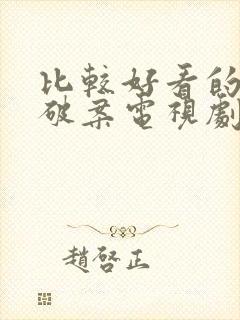 比較好看的
破案電視劇
趙啓正